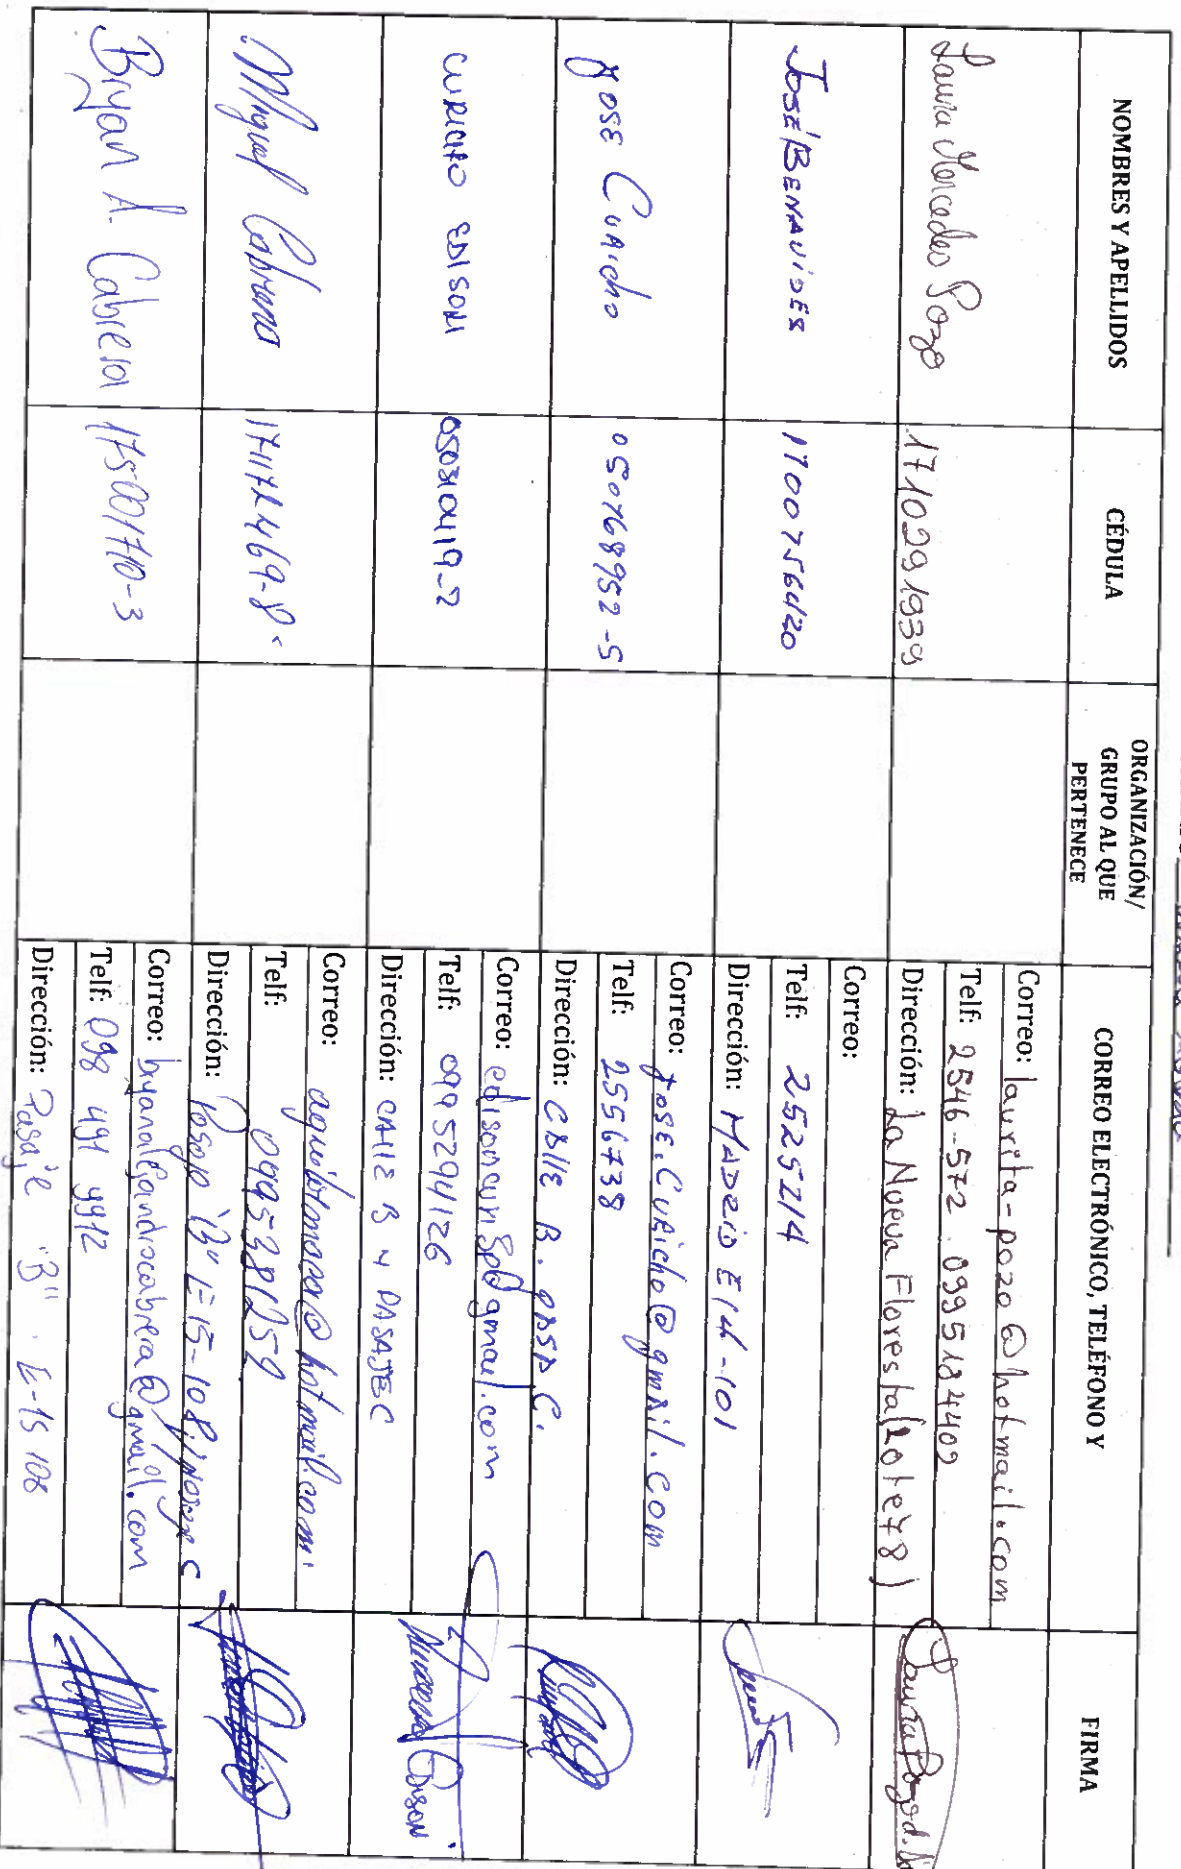 NOMBRES Y APELLIDOS
CÉDULA
ORGANIZACIÓN/
GRUPO AL QUE
PERTENECE
CORREO ELECTRÓNICO, TELÉFONO Y
FIRMA
Laura Mercedes Pozo
1710291939
Correo: laurita-pozo@hotmail.com
Telf: 2546-572 . 0995184409
Dirección: La Nueva Floresta (Lote 48)
JOSÉ BENAVIDES
1700756420
Correo:
Telf: 2525214
Dirección: MADRID E14-101
JOSE CURICHO
050768952-5
Correo: JOSE.CURICHO@gmail.com
Telf: 2556738
Dirección: CALLE B.
CURICHO EDISON
050310419-2
Correo:
Telf: 0995294126
Dirección: CALLE B Y PASAJE C
Miguel Cabrera
171172469-8
Correo: @hotmail.com
Telf: 0995381259
Dirección: Pasaje "B" E-15-108
Bryan A. Cabrera
175001710-3
Correo: bryanalejandrocabrera@gmail.com
Telf: 098 491 9912
Dirección: Pasaje "B". E-15 108